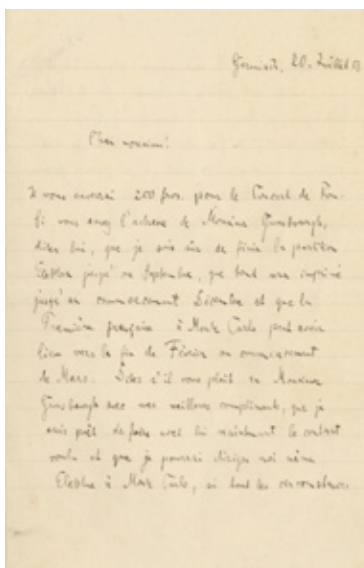 20. Juillet
Cher monsieur!
Je vous enverrai 200 frcs. pour le Concert de
Si vous avez l'adresse de Monsieur Gunsbourgh,
dites lui, que je suis sûr de finir la partition
jusqu'en Septembre, que tout sera imprimé
jusqu'au commencement Décembre et que la
Première française à Monte Carlo peut avoir
lieu vers la fin de Février ou commencement
de Mars. Dites s'il vous plaît à Monsieur
Gunsbourgh avec mes meilleurs compliments, que je
suis prêt de faire avec lui maintenant le contract
et que je pourrai diriger moi même
à Monte Carlo, si tout les circonstances